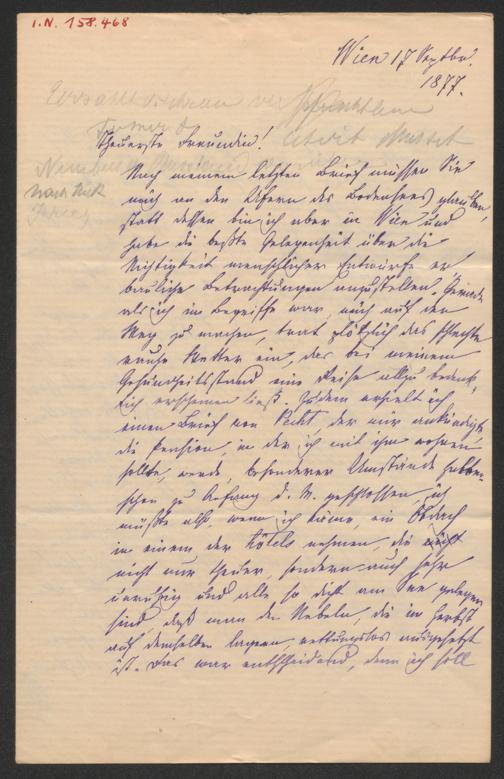 I.N. 158.468
Wien 17 Septbr.
1877.
Theuerste Freundin!
Nach meinem letzten Brief müssen Sie
mich an den Ufern des Bodensees glauben,
statt dessen bin ich aber in Wien und
habe die beßte Gelegenheit über die
Nichtigkeit menschlicher Entwürfe er-
bauliche Betrachtungen anzustellen. Gerade
als ich im Begriffe war, mich auf den
Weg zu machen, trat plötzlich das schlechte
rauhe Wetter ein, das bei meinem
Gesundheitsstand eine Reise allzu bedenk-
lich erscheinen ließ. Zudem erhielt ich
einen Brief von Pecht, der mir ankündigte
die Pension, in der ich mit ihm wohnen
sollte, werde, besonderer Umstände halber
schon zu Anfang d. M. geschlossen, ich
müßte also, wenn ich käme, ein Obdach
in einem der Hôtels nehmen, die
nicht nur theuer, sondern auch sehr
unruhig und alle so dicht am See gelegen
sind, daß man den Nebeln, die im Herbst
auf demselben lagern, rettungslos ausgesetzt
ist. Das war entscheidend, denn ich soll